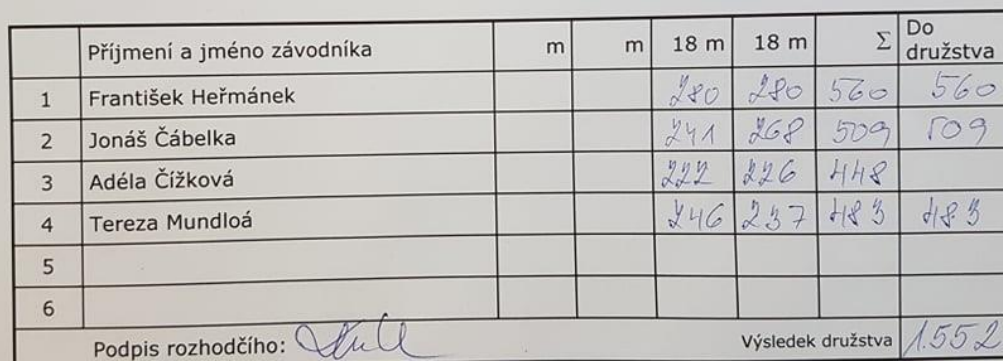 Příjmení a jméno závodníka m m 18 m 18 m Σ Do družstva
1 František Heřmánek 280 280 560 560
2 Jonáš Čábelka 241 268 509 509
3 Adéla Čížková 222 226 448
4 Tereza Mundloá 246 237 483 483
5
6
Podpis rozhodčího: Výsledek družstva 1.552